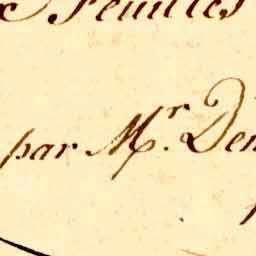 Feuilles
par Mr. Den